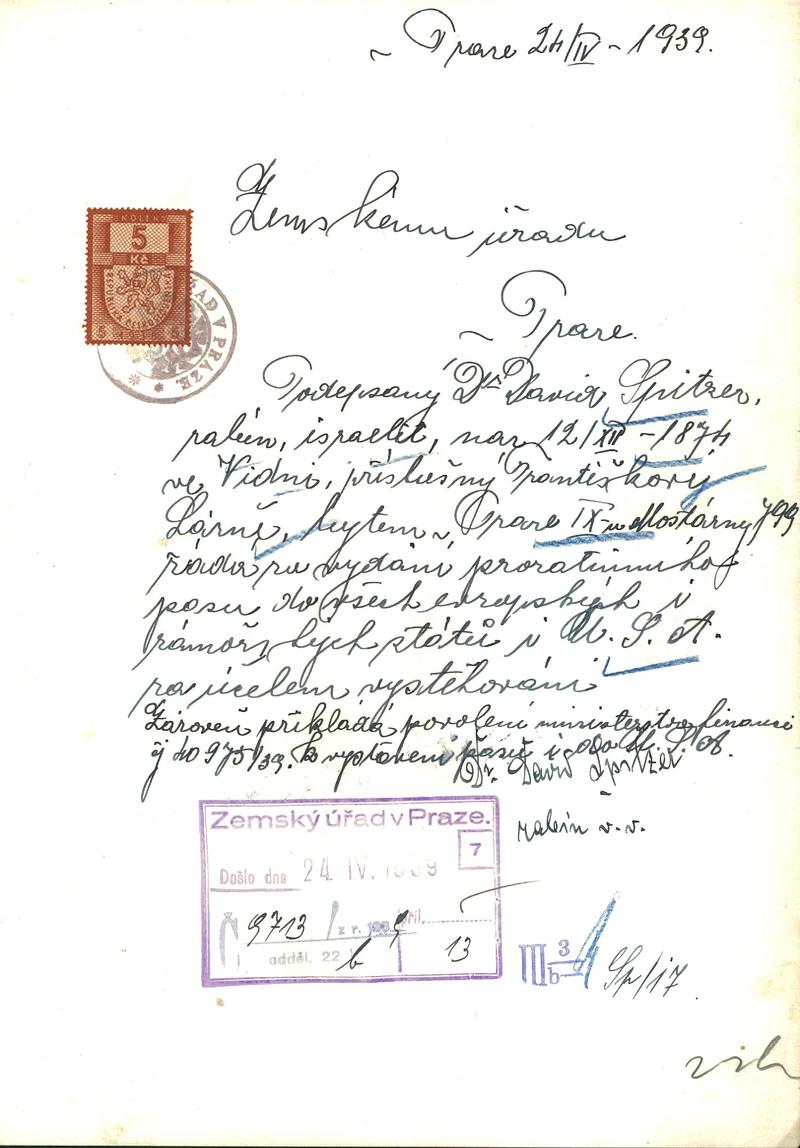 v Praze 24/IV - 1939.
KOLEK
5
Kč
ŘAD V PRAZE
Zemskému úřadu
v Praze.
Podepsaný Dr. David Spitzer,
rabín, israelit, nar 12/XII - 1874
ve Vídni, příslušný Františkovy
Lázně, bytem v Praze IX u Mostárny 799
žádá za vydání prozatimního
pasu do všech evropských i
zámořských států i U. S. A.
za účelem vystěhování
Zároveň přikládá povolení ministerstva financí
čj 40975/39. k vystavení pasů i do U. S. A.
Dr. David Spitzer
rabín v. v.
Zemský úřad v Praze.
7
Došlo dne 24. IV. 1939
Č 9713 / z r. 193 9 příl.
odděl. 22 b 13
III 3 b
Sp/17